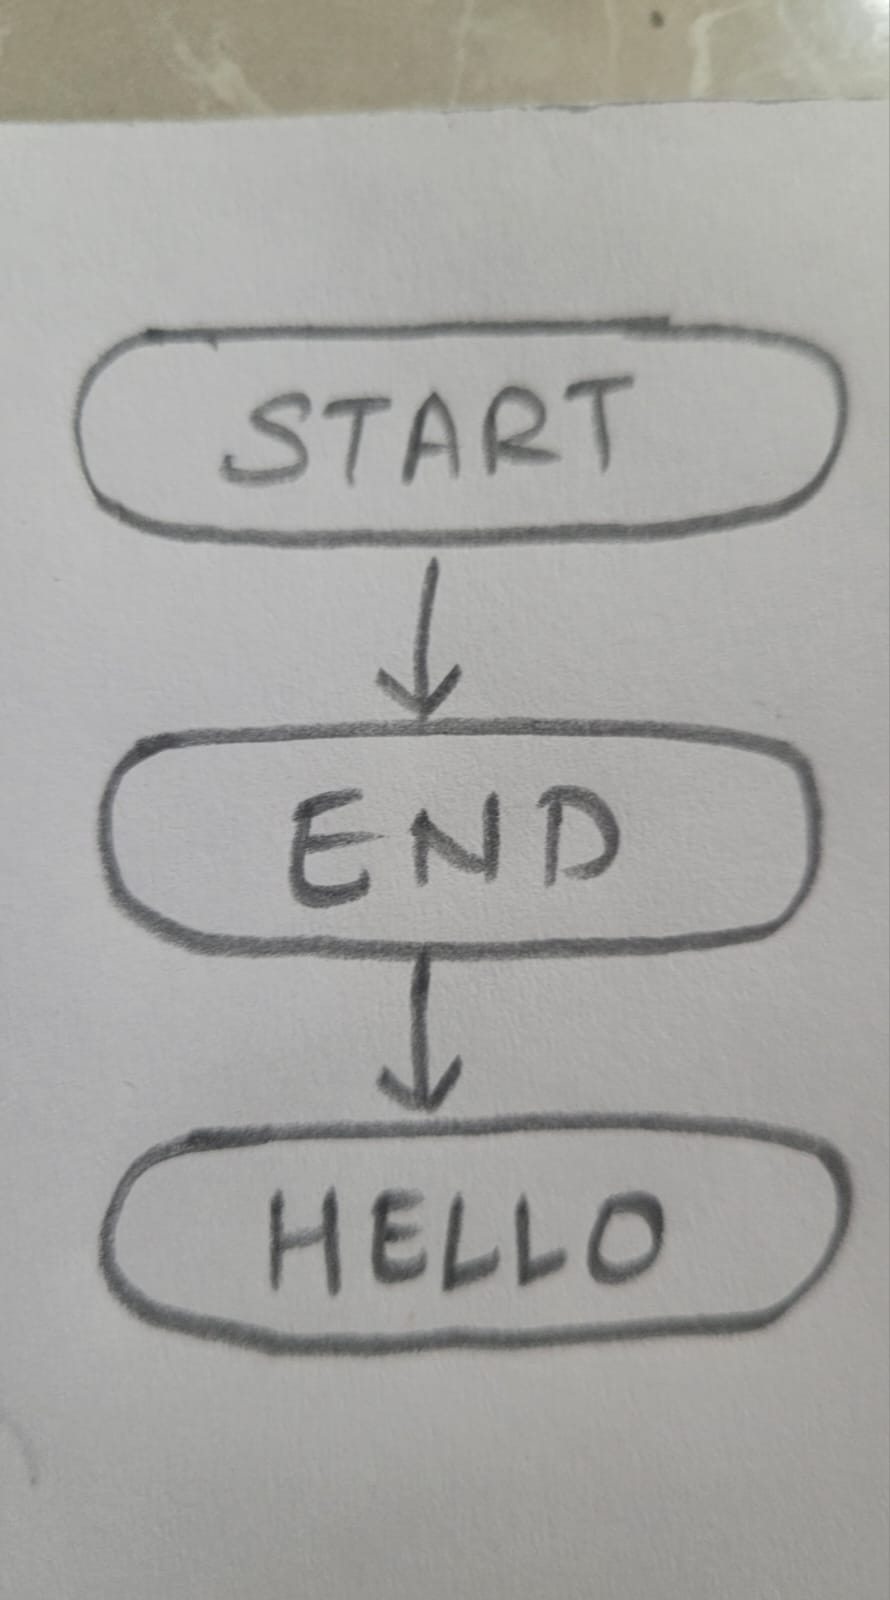 START
END
HELLO